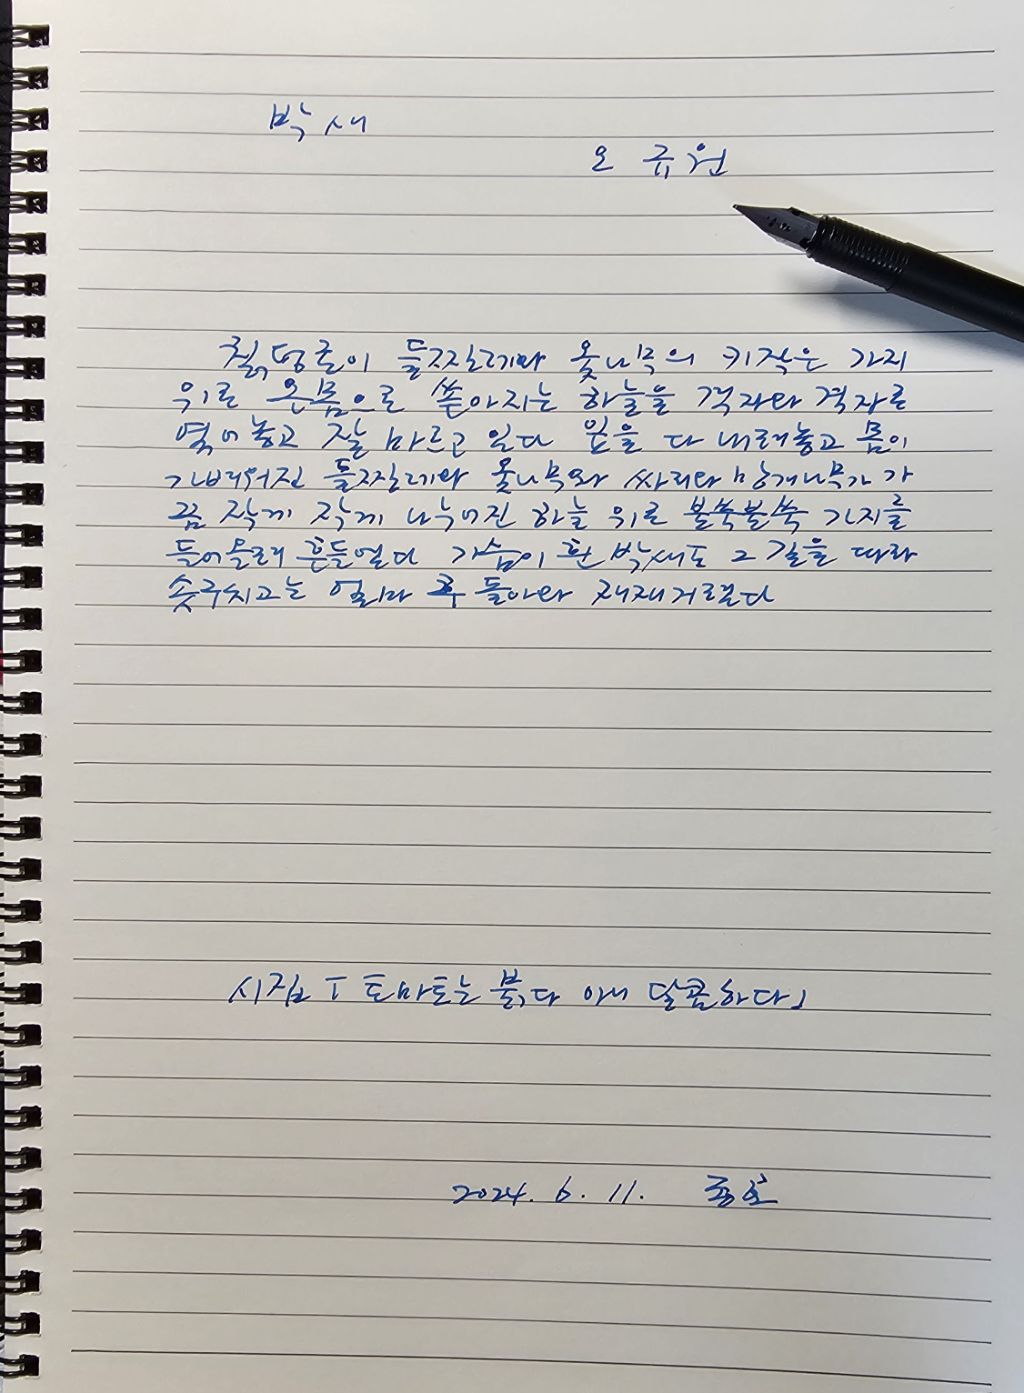 박새
오 규원
칡덩굴이 들찔레와 옻나무의 키작은 가지
위로 온몸으로 쏟아지는 하늘을 격자와 격자로
엮어놓고 잘 마르고 있다 잎을 다 내려놓고 몸이
가벼워진 들찔레와 옻나무와 싸리와 망개나무가 가
끔 작게 작게 나누어진 하늘 위로 불쑥불쑥 가지를
들어올려 흔들었다 가슴이 흰 박새도 그 길을 따라
솟구치고는 얼마 후 돌아와 재재거렸다
시집 「토마토는 붉다 아니 달콤하다」
2024. 6. 11.